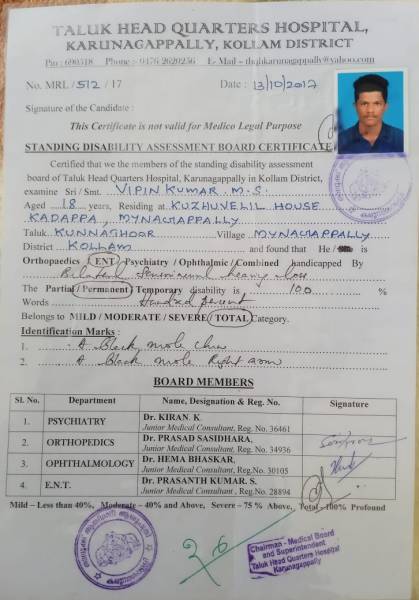 TALUK HEAD QUARTERS HOSPITAL,
KARUNAGAPPALLY, KOLLAM DISTRICT
Pin : 690518 Phone : 0476 2620256 E- Mail – thqhkarunagappally@yahoo.com
No. MRL / 512 / 17 Date : 13/10/2017
Signature of the Candidate :
This Certificate is not valid for Medico Legal Purpose
STANDING DISABILITY ASSESSMENT BOARD CERTIFICATE
Certified that we the members of the standing disability assessment
board of Taluk Head Quarters Hospital, Karunagappally in Kollam District,
examine Sri / Smt. VIPIN KUMAR. M. S.
Aged 18 years, Residing at KUZHUVELIL HOUSE
KADAPPA, MYNAGAPPALLY
Taluk KUNNATHOOR Village MYNAGAPPALLY
District KOLLAM and found that He is
Orthopaedics / ENT / Psychiatry / Ophthalmic / Combined handicapped By
Bilateral Sensorineural hearing loss
The Partial / Permanent / Temporary disability is 100 %
Words Hundred percent
Belongs to MILD / MODERATE / SEVERE / TOTAL Category.
Identification Marks :
1. A Black mole chin
2. A Black mole Right arm
BOARD MEMBERS
Sl. No. Department Name, Designation & Reg. No. Signature
1. PSYCHIATRY Dr. KIRAN. K.
Junior Medical Consultant, Reg. No. 36461
2. ORTHOPEDICS Dr. PRASAD SASIDHARA,
Junior Medical Consultant, Reg. No. 34936
3. OPHTHALMOLOGY Dr. HEMA BHASKAR,
Junior Medical Consultant, Reg.No. 30105
4. E.N.T. Dr. PRASANTH KUMAR. S,
Junior Medical Consultant , Reg.No. 28894
Mild – Less than 40%, Moderate – 40% and Above, Severe – 75 % Above, Total – 100% Profound
Chairman - Medical Board
and Superintendent
Taluk Head Quarters Hospital
Karunagappally